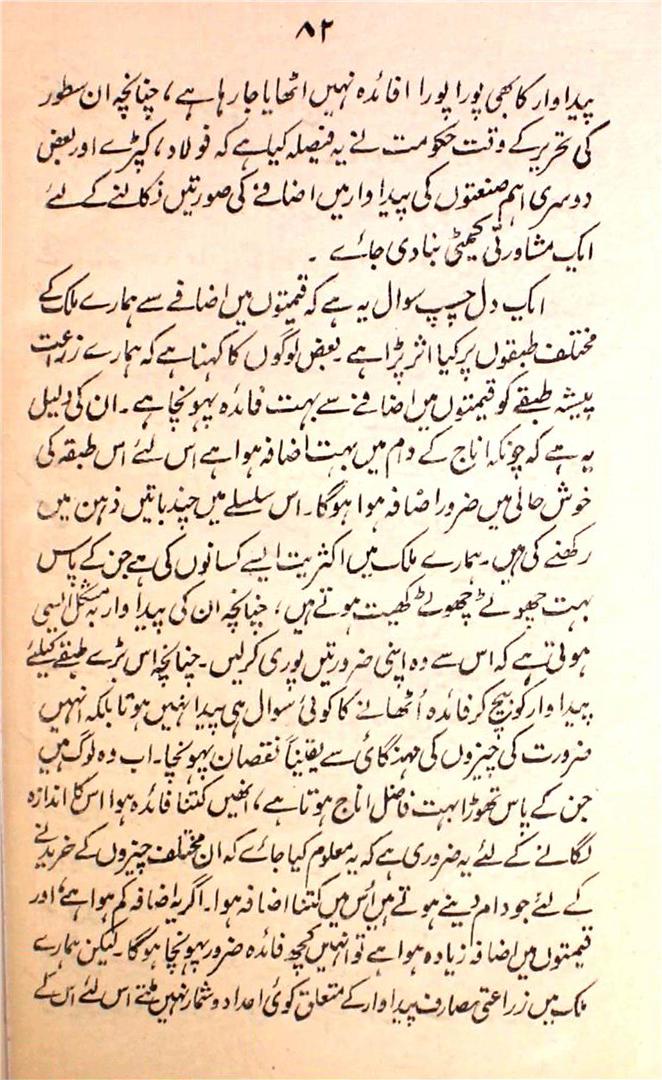 ۸۲
پیداوار کا بھی پورا پورا افائدہ نہیں اٹھایا جا رہا ہے، چنانچہ ان سطور
کی تحریر کے وقت حکومت نے یہ فیصلہ کیا ہے کہ فولاد، کپڑے اور بعض
دوسری اہم صنعتوں کی پیداوار میں اضافے کی صورتیں نکالنے کے لئے
ایک مشاورتی کمیٹی بنا دی جائے ۔
ایک دل چسپ سوال یہ ہے کہ قیمتوں میں اضافے سے ہمارے ملک کے
مختلف طبقوں پر کیا اثر پڑا ہے۔ بعض لوگوں کا کہنا ہے کہ ہمارے زراعت
پیشہ طبقے کو قیمتوں میں اضافے سے بہت فائدہ پہونچا ہے۔ ان کی دلیل
یہ ہے کہ چونکہ اناج کے دام میں بہت اضافہ ہوا ہے اس لئے اس طبقہ کی
خوش حالی میں ضرور اضافہ ہوا ہوگا۔ اس سلسلے میں چند باتیں ذہن میں
رکھنے کی ہیں۔ ہمارے ملک میں اکثریت ایسے کسانوں کی ہے جن کے پاس
بہت چھوٹے چھوٹے کھیت ہوتے ہیں، چنانچہ ان کی پیداوار بہ مشکل ایسی
ہوتی ہے کہ اس سے وہ اپنی ضرورتیں پوری کرلیں۔ چنانچہ اس بڑے طبقے کیلئے
پیداوار کو بیچ کر فائدہ اُٹھانے کا کوئی سوال ہی پیدا نہیں ہوتا بلکہ انہیں
ضرورت کی چیزوں کی مہنگائی سے یقیناً نقصان پہونچا۔ اب وہ لوگ ہیں
جن کے پاس تھوڑا بہت فاضل اناج ہوتا ہے، انھیں کتنا فائدہ ہوا اس کا اندازہ
لگانے کے لئے یہ ضروری ہے کہ یہ معلوم کیا جائے کہ ان مختلف چیزوں کے خریدنے
کے لئے جو دام دینے ہوتے ہیں اُس میں کتنا اضافہ ہوا۔ اگر یہ اضافہ کم ہوا ہے، اور
قیمتوں میں اضافہ زیادہ ہوا ہے تو انہیں کچھ فائدہ ضرور پہونچا ہوگا۔ لیکن ہمارے
ملک میں زراعتی مصارف پیداوار کے متعلق کوئی اعداد و شمار نہیں ملتے اس لئے اس کے